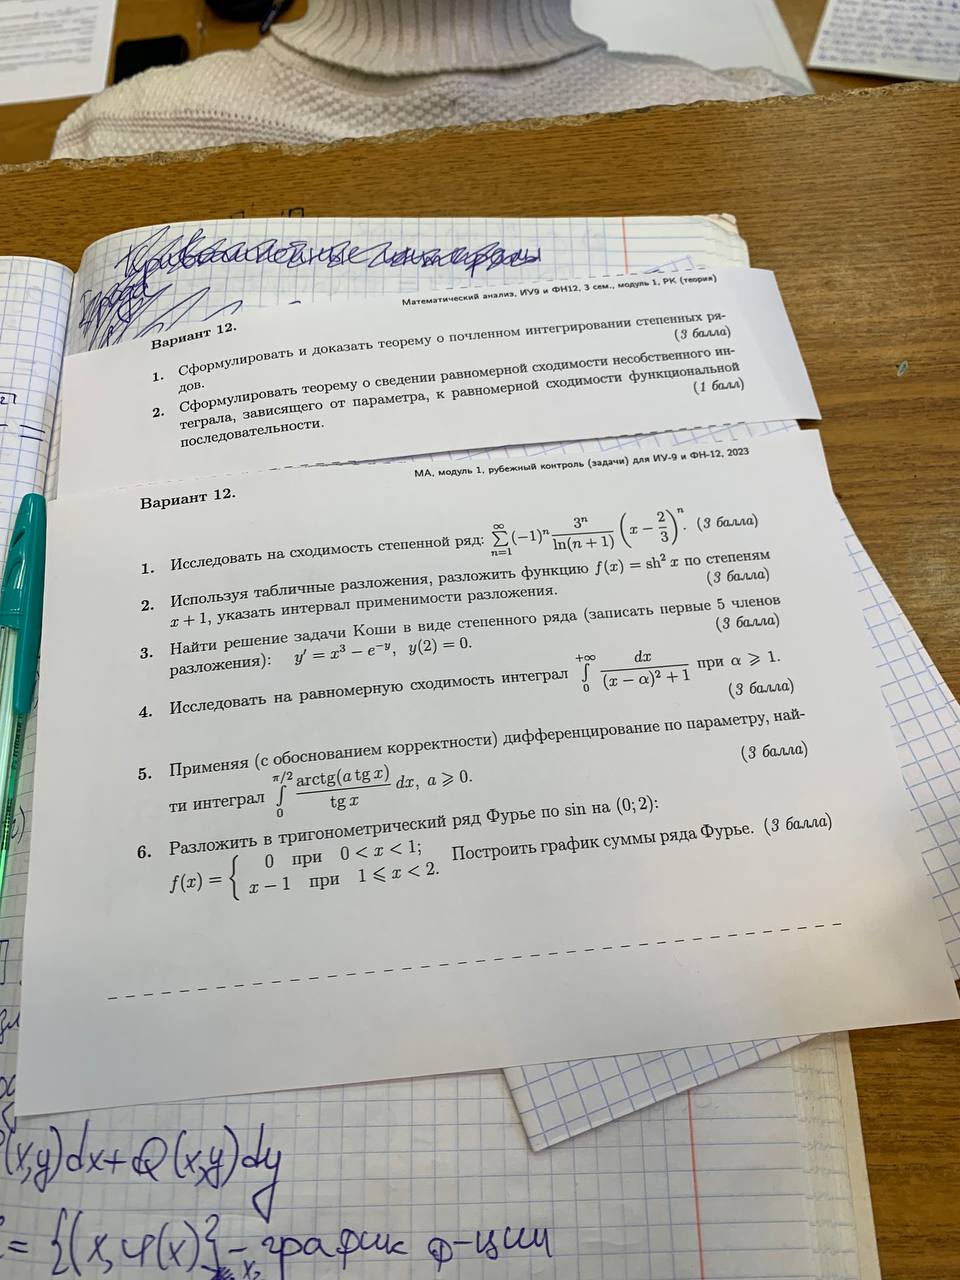 Математический анализ, ИУ9 и ФН12, 3 сем., модуль 1, РК (теория)
Вариант 12.
1. Сформулировать и доказать теорему о почленном интегрировании степенных ря-
дов. (3 балла)
2. Сформулировать теорему о сведении равномерной сходимости несобственного ин-
теграла, зависящего от параметра, к равномерной сходимости функциональной
последовательности. (1 балл)
МА, модуль 1, рубежный контроль (задачи) для ИУ-9 и ФН-12, 2023
Вариант 12.
1. Исследовать на сходимость степенной ряд: ∑_{n=1}^{∞} (−1)^n 3^n/ln(n + 1) (x − 2/3)^n. (3 балла)
2. Используя табличные разложения, разложить функцию f(x) = sh² x по степеням
x + 1, указать интервал применимости разложения. (3 балла)
3. Найти решение задачи Коши в виде степенного ряда (записать первые 5 членов
разложения): y′ = x³ − e^{−y}, y(2) = 0. (3 балла)
4. Исследовать на равномерную сходимость интеграл ∫_0^{+∞} dx/((x − α)² + 1) при α ⩾ 1.
(3 балла)
5. Применяя (с обоснованием корректности) дифференцирование по параметру, най-
ти интеграл ∫_0^{π/2} arctg(a tg x)/tg x dx, a ⩾ 0. (3 балла)
6. Разложить в тригонометрический ряд Фурье по sin на (0; 2):
f(x) = { 0 при 0 < x < 1;
x − 1 при 1 ⩽ x < 2. Построить график суммы ряда Фурье. (3 балла)
(x,y)dx+Q(x,y)dy
= {(x,φ(x)} - график ф-ции